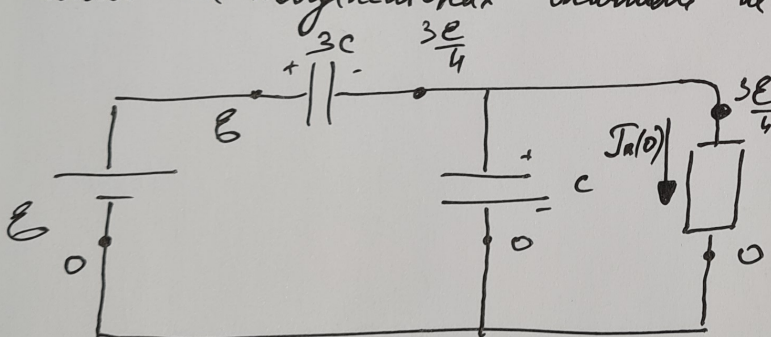 3C
3ℰ/4
+ -
ℰ
3ℰ/4
J_R(0)
+
C
-
ℰ
0
0
0